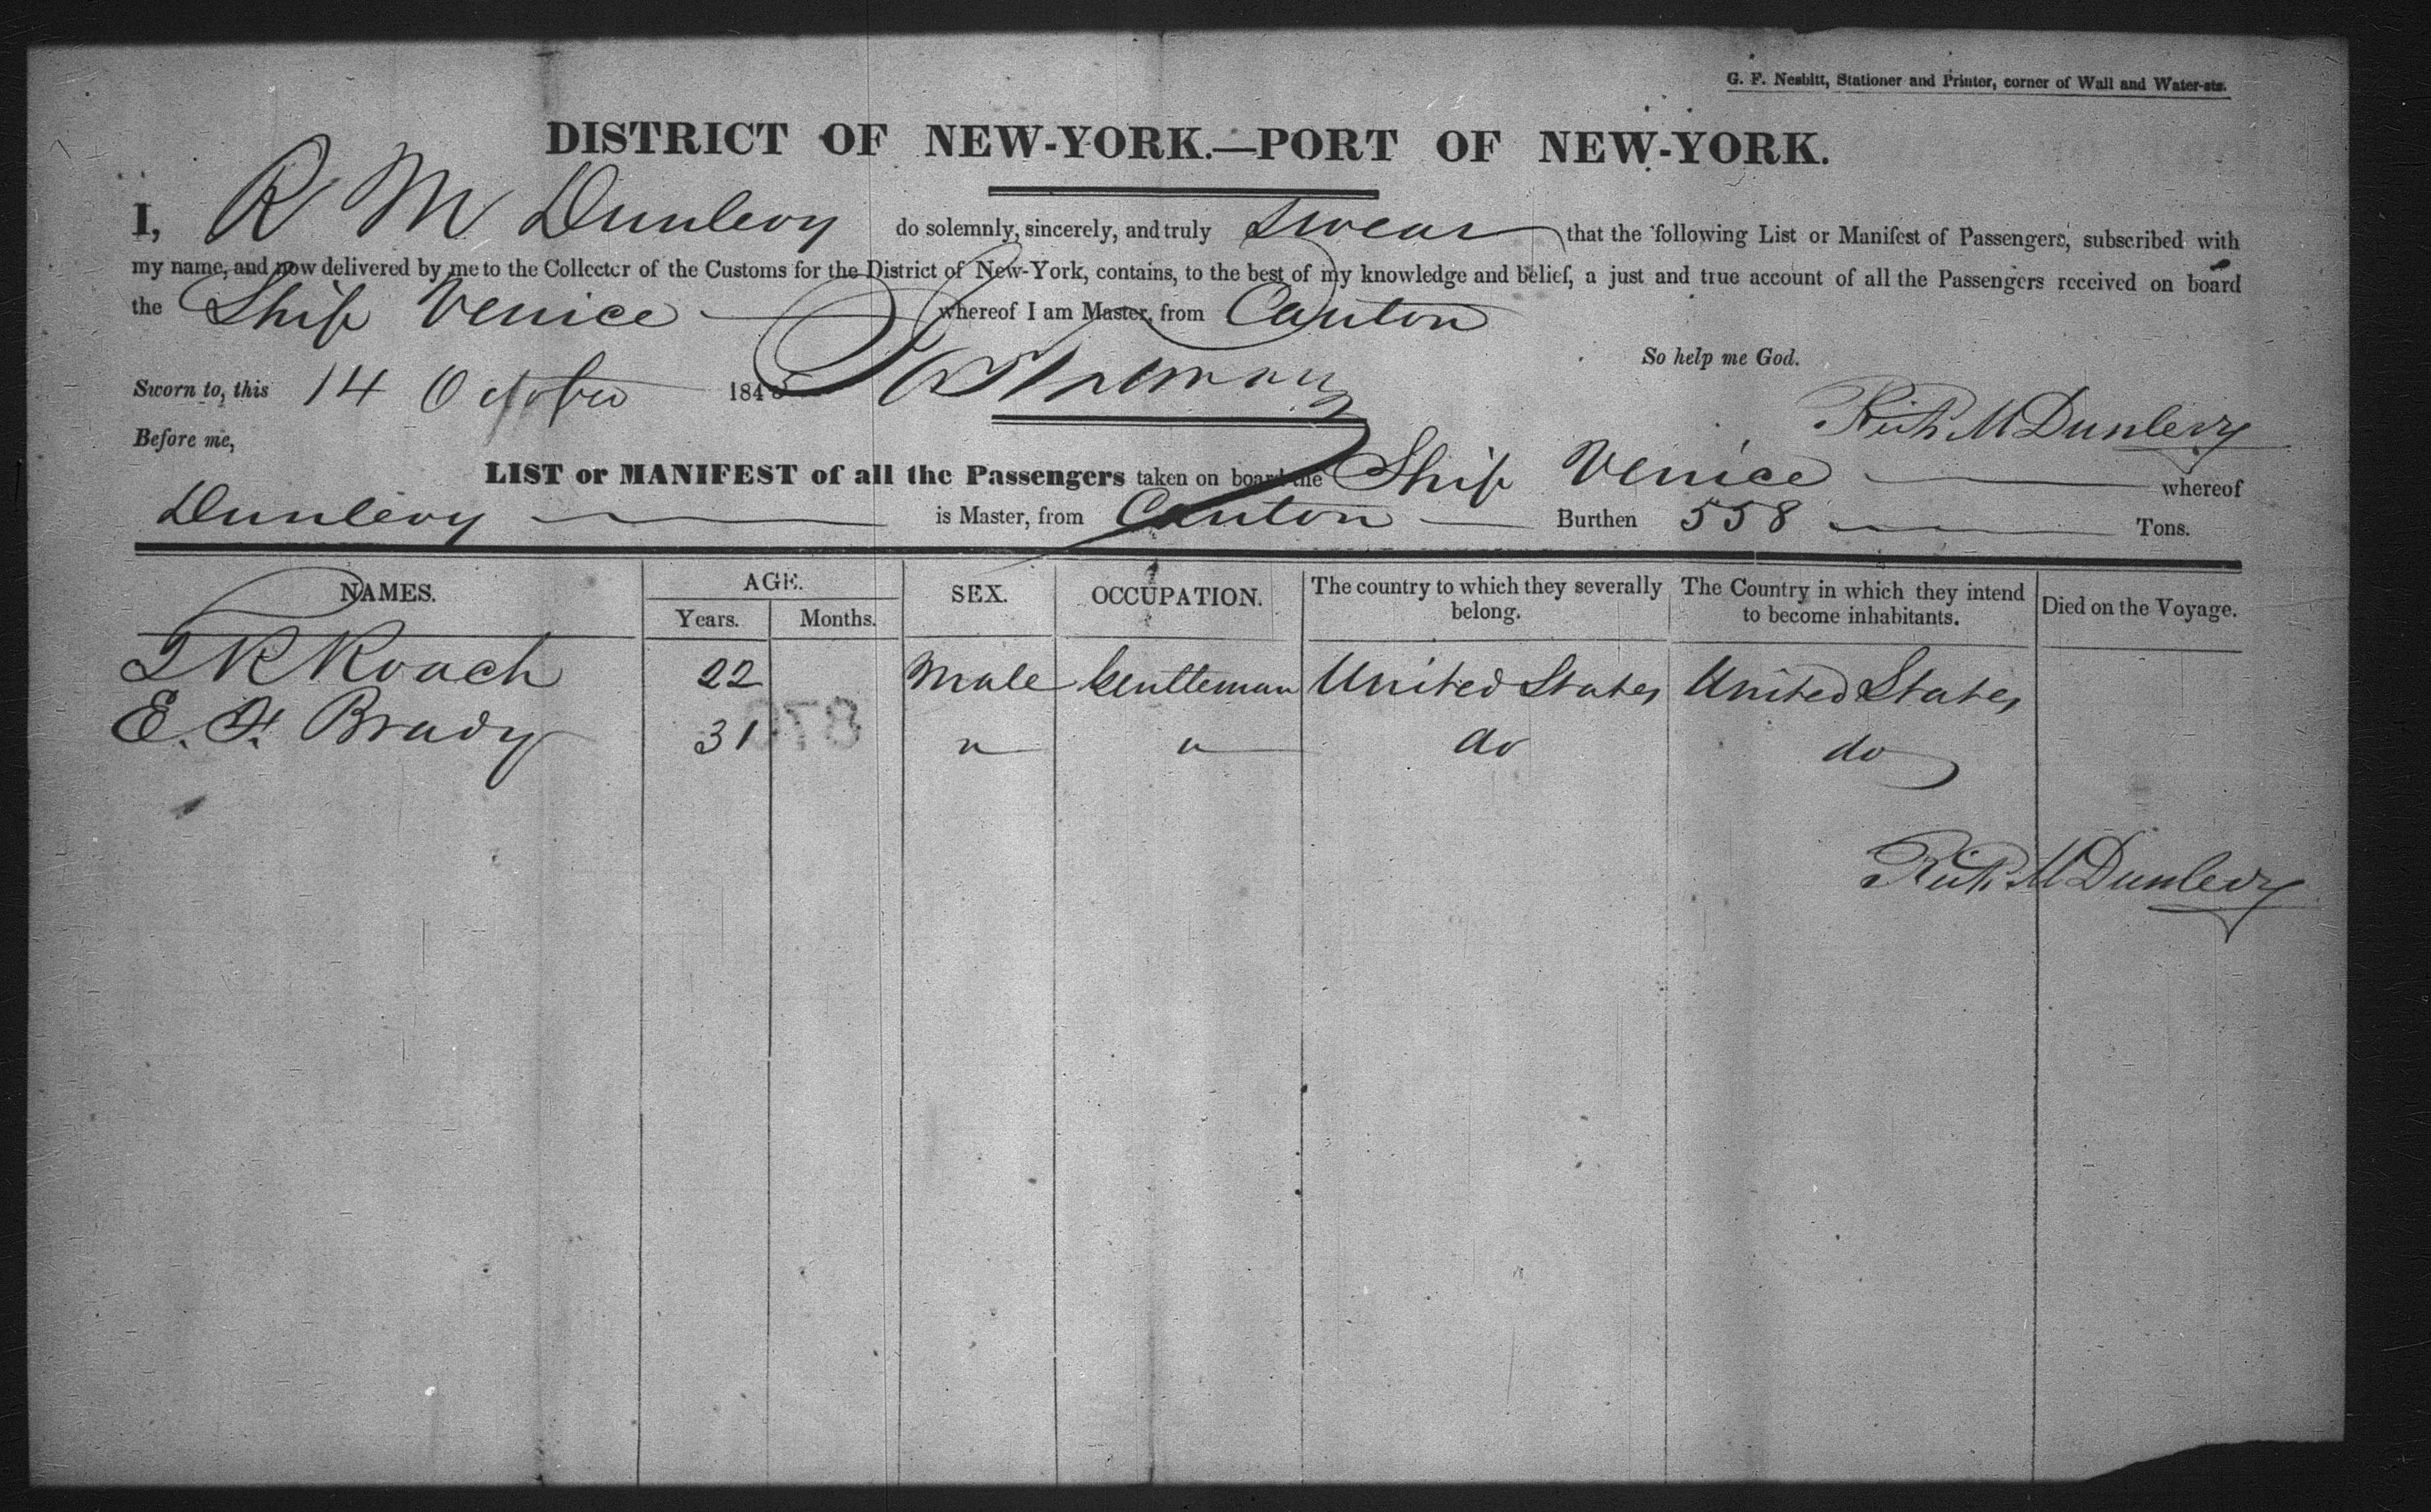 G. F. Nesbitt, Stationer and Printer, corner of Wall and Water-sts.
DISTRICT OF NEW-YORK.—PORT OF NEW-YORK.
I, R M Dunlevy do solemnly, sincerely, and truly swear that the following List or Manifest of Passengers, subscribed with
my name, and now delivered by me to the Collector of the Customs for the District of New-York, contains, to the best of my knowledge and belief, a just and true account of all the Passengers received on board
the Ship Venice whereof I am Master, from Canton
So help me God.
Sworn to, this 14 October 184
Richd M Dunlevy
Before me,
LIST or MANIFEST of all the Passengers taken on board the Ship Venice whereof
Dunlevy is Master, from Canton Burthen 558 Tons.
NAMES. AGE. SEX. OCCUPATION. The country to which they severally belong. The Country in which they intend to become inhabitants. Died on the Voyage.
Years. Months.
Roach 22 Male Gentleman United States United States
E. F. Brady 31 " " do do
878
Richd M Dunlevy